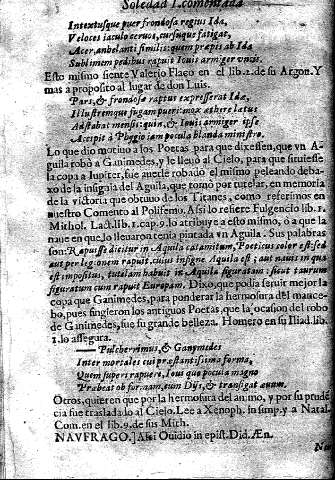 Soledad I. comentada
Intextusque puer frondosa regius Ida,
Veloces iaculo ceruos, cursuque fatigat,
Acer, anhelanti similis: quem præpes ab Ida
Sublimem pedibus rapuit Iouis armiger vncis.
Esto mismo siente Valerio Flaco en el lib. 2. de su Argon. Y
mas a proposito al lugar de don Luis.
Pars, & frondosæ raptus expresserat Idæ,
Illustremque fugam pueri: mox æthere lætus
Adstabat mensis: quin, & Iouis armiger ipse
Accipit à Phrygio iam pocula blanda ministro.
Lo que dio motiuo a los Poetas para que dixessen, que vn A-
guila robò a Ganimedes, y le lleuò al Cielo, para que siruiesse
la copa a Iupiter, fue auerle robado el mismo peleando deba-
xo de la insignia del Aguila, que tomò por tutelar, en memoria
de la victoria que obtuuo de los Titanes, como referimos en
nuestro Comento al Polifemo. Assi lo refiere Fulgencio lib. 1.
Mithol. Lact. lib. 1. cap. 9. lo atribuye a esto mismo, ò a que la
naue en que lo lleuaron tenia pintada vn Aguila. Sus palabras
son:
que possia seruir mejor la
copa que Ganimedes, para ponderar la hermosura del mance-
bo, pues fingieron los antiguos Poetas, que la ocasion del robo
de Ganimedes, fue su grande belleza. Homero en su Iliad. lib.
1. lo assegura.
—— Pulcherrimus, & Ganymedes
Inter mortales cui præstantissima forma,
Quem superi rapuere, Ioui que pocula magno
Præbeat ob formam, cum Dijs, & transigat æuum.
Otros, quieren que por la hermosura del animo, y por su prudẽ
cia fue trasladado al Cielo. Lee a Xenoph. in simp. y a Natal.
Com. en el lib. 9. de sus Mith.
NAVFRAGO.] Assi Ouidio in epist. Did. Æn.